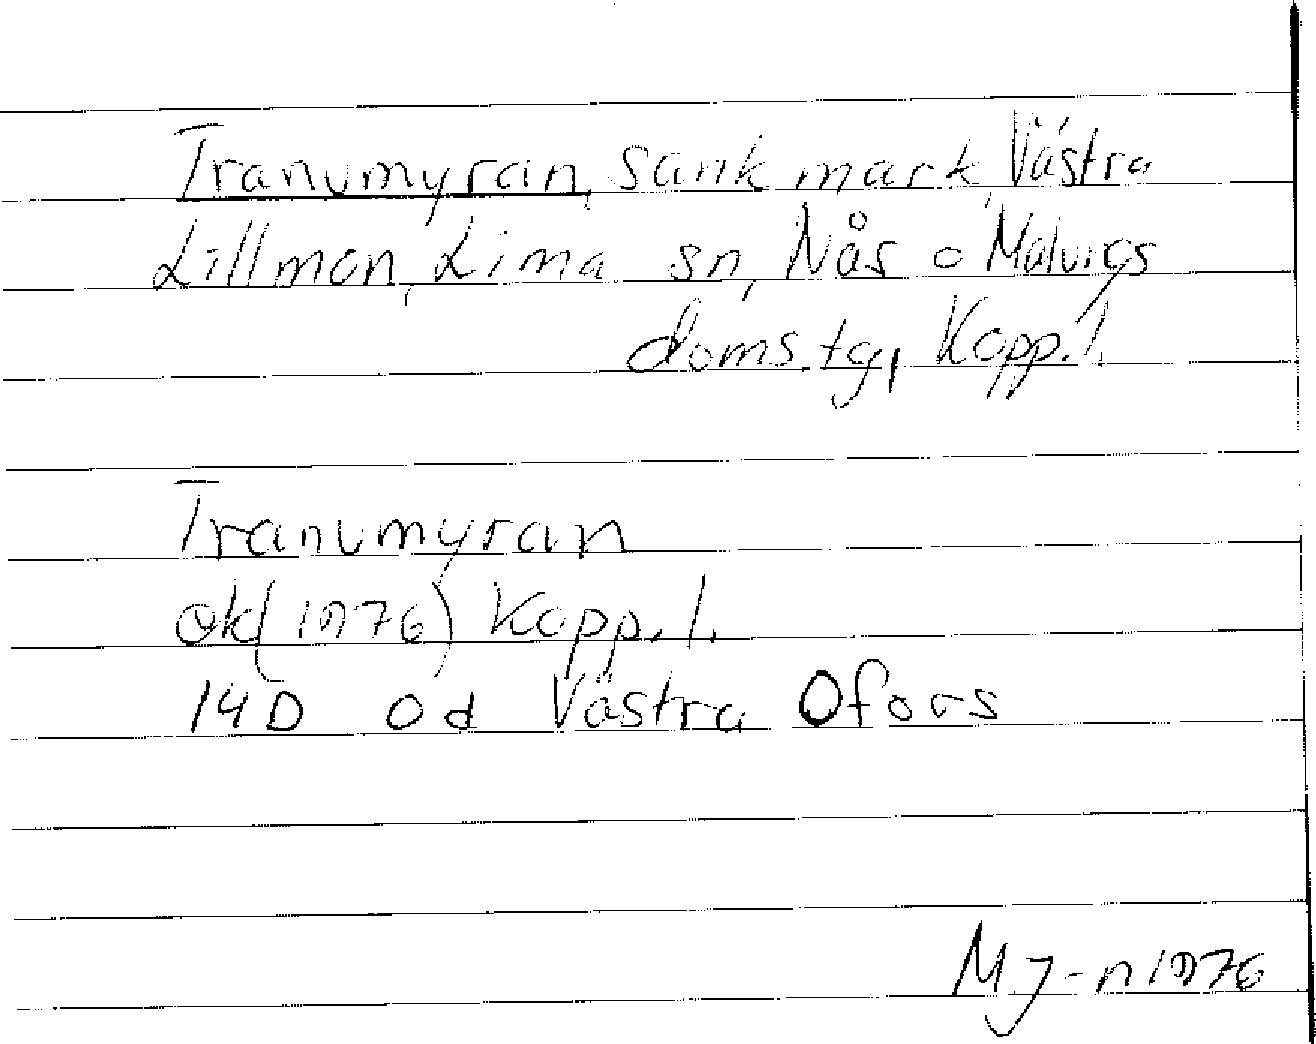 Tranumyran, sank mark, Västra
Lillmon, Lima sn, Nås o Malungs
doms.tg, Kopp. l.
Tranumyran
ek (1976) Kopp. l.
14D 0d Västra Ofors
MJ-n 1976